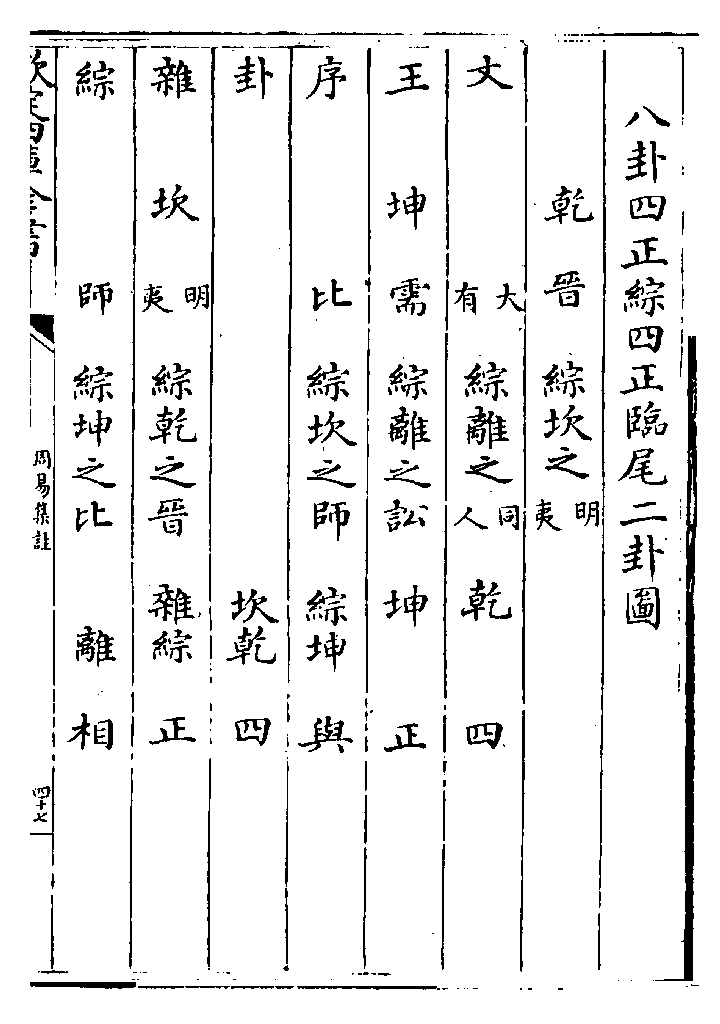 八卦四正綜四正臨尾二卦圖
乾 晉 綜坎之明夷
文 大有 綜離之同人 乾 四
王 坤 需 綜離之訟 坤 正
序 比 綜坎之師 綜坤 與
卦 坎乾 四
雜 坎 明夷 綜乾之晉 雜綜 正
綜 師 綜坤之比 離 相
欽定四庫全書
周易集註
四十七